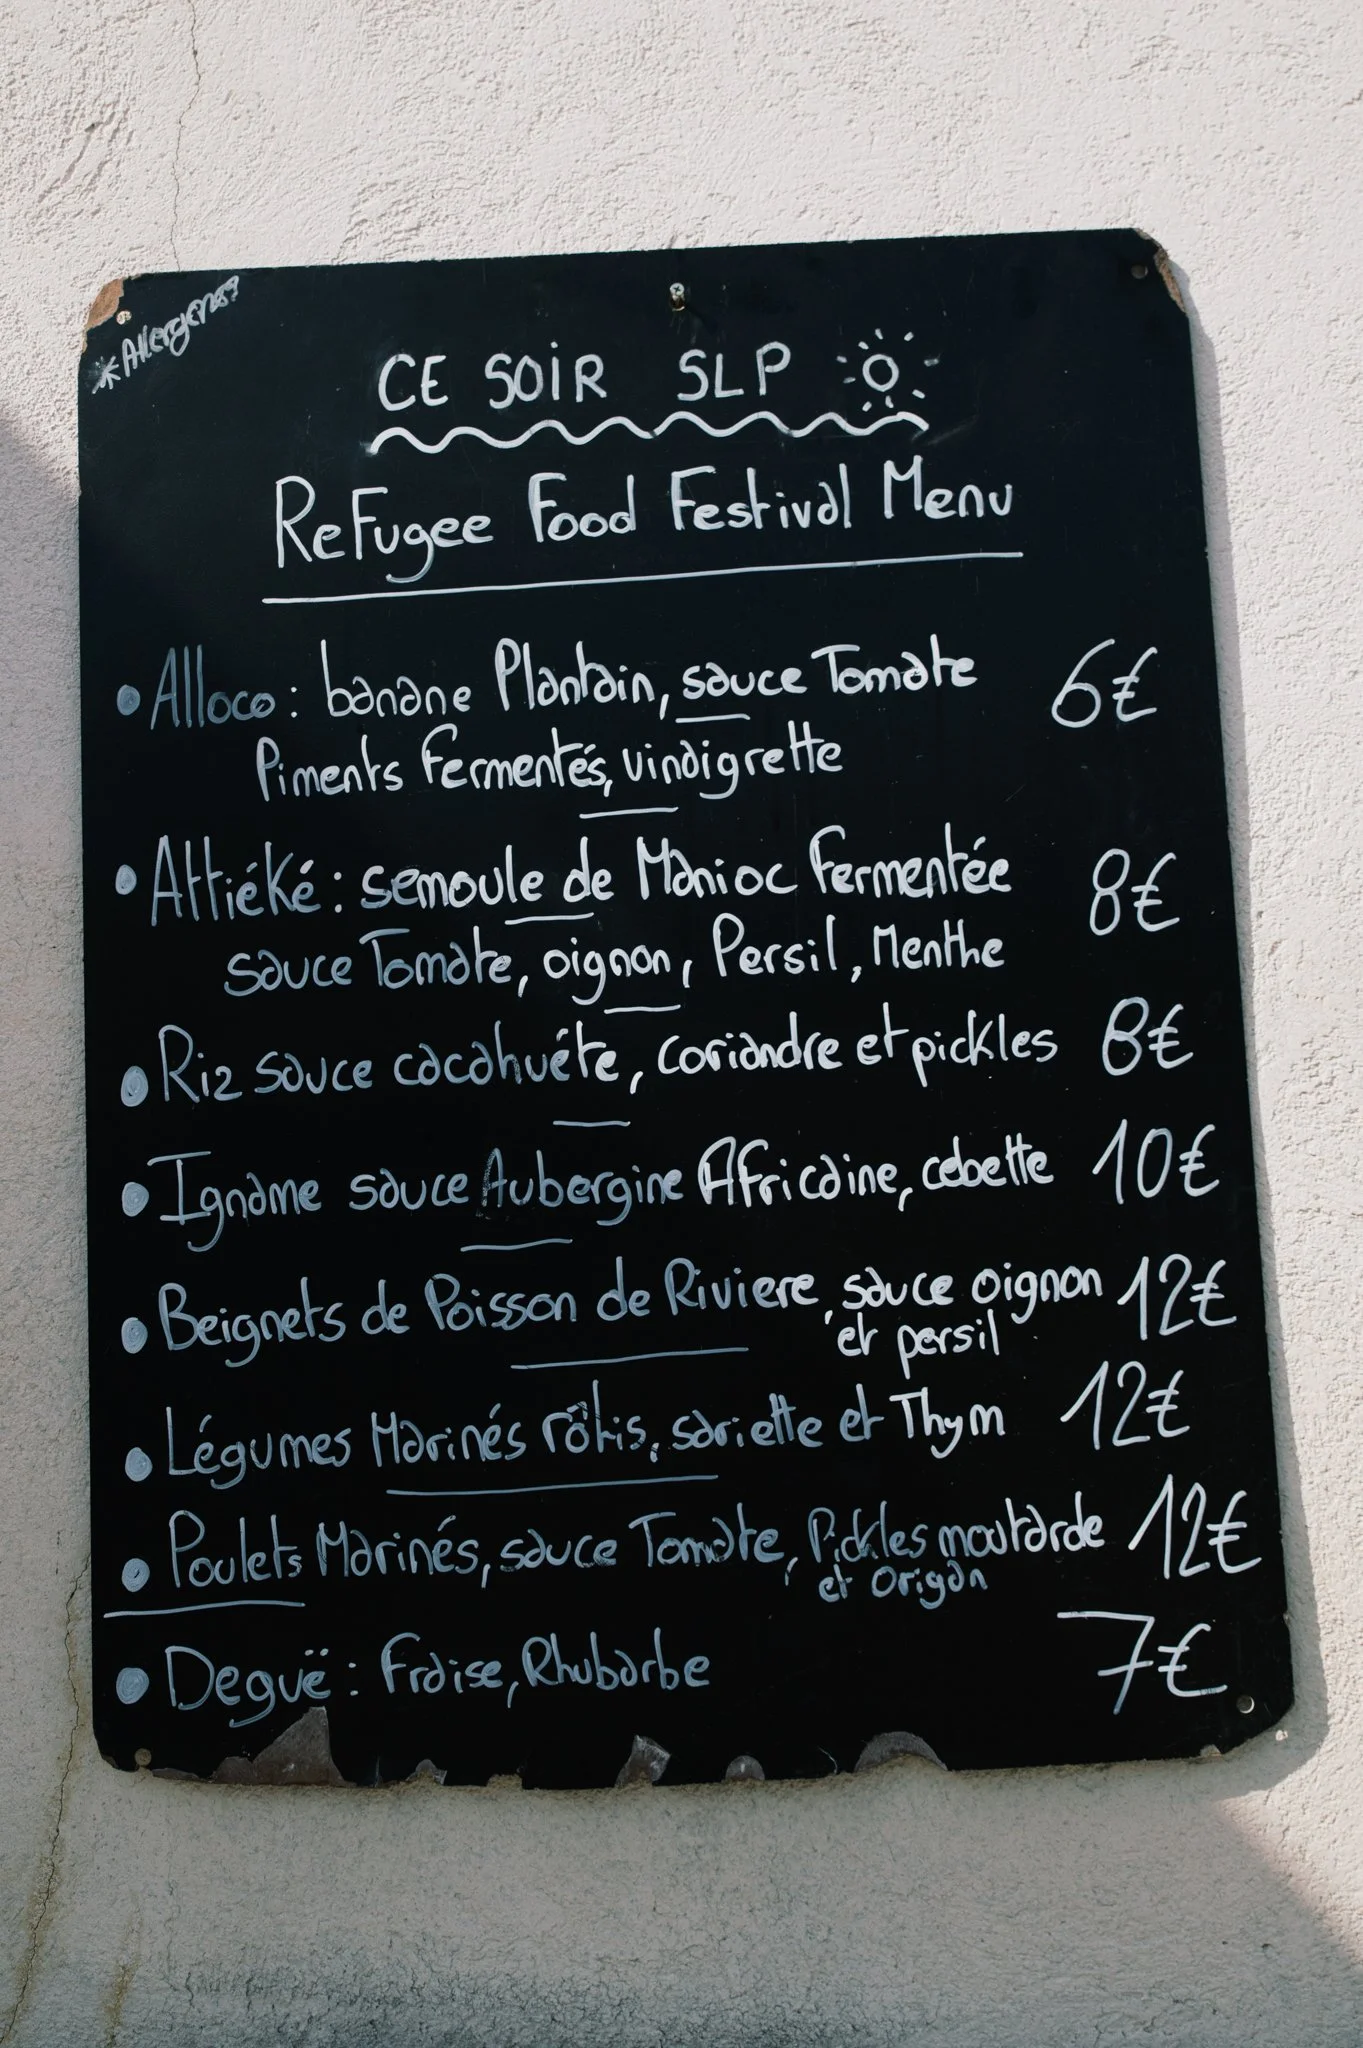 *Allergens?
CE SOIR SLP
Refugee Food Festival Menu
• Alloco : banane Plantain, sauce Tomate 6€
Piments fermentés, vinaigrette
• Attiéké : semoule de Manioc fermentée 8€
sauce Tomate, oignon, Persil, Menthe
• Riz sauce cacahuéte, coriandre et pickles 8€
• Igname sauce Aubergine Africaine, cebette 10€
• Beignets de Poisson de Riviere, sauce oignon 12€
et persil
• Légumes Marinés rôtis, sariette et Thym 12€
• Poulets Marinés, sauce Tomate, Pickles moutarde 12€
et origan
• Deguë : fraise, Rhubarbe 7€